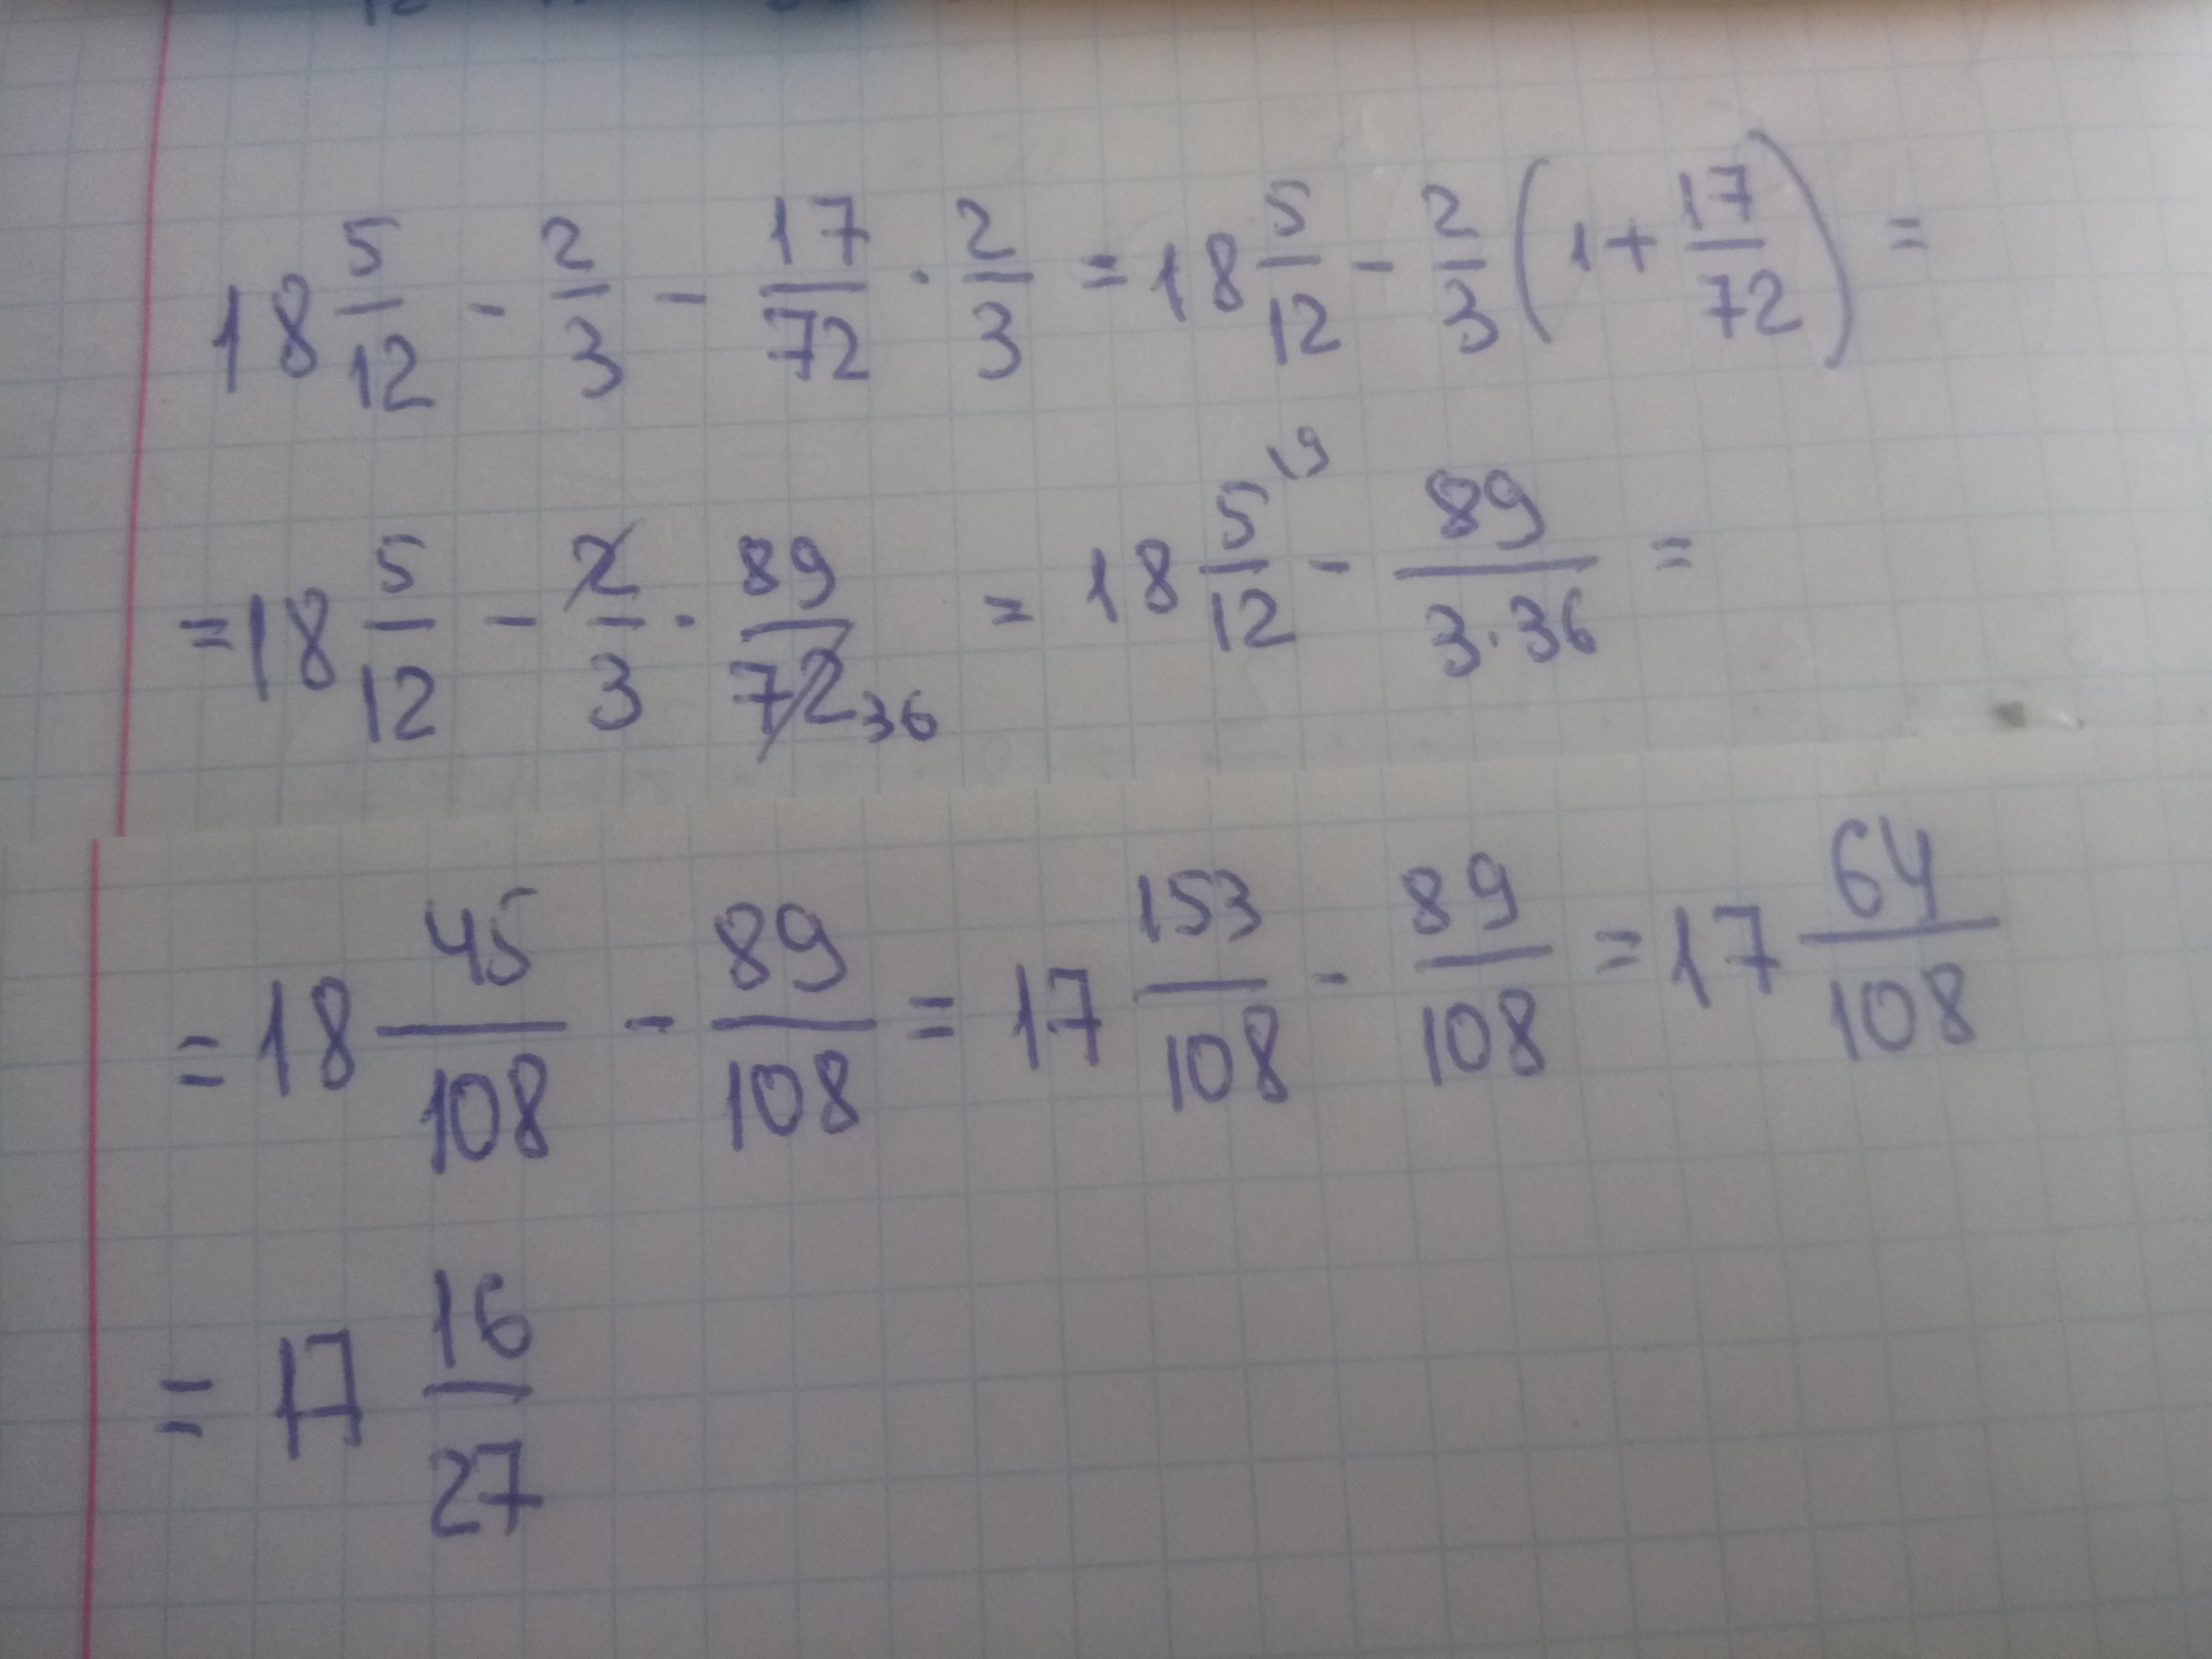 18 5/12 - 2/3 - 17/72 · 2/3 = 18 5/12 - 2/3 (1 + 17/72) =
= 18 5/12 - 2/3 · 89/72 36 = 18 5/12 19 - 89/(3·36) =
= 18 45/108 - 89/108 = 17 153/108 - 89/108 = 17 64/108
= 17 16/27